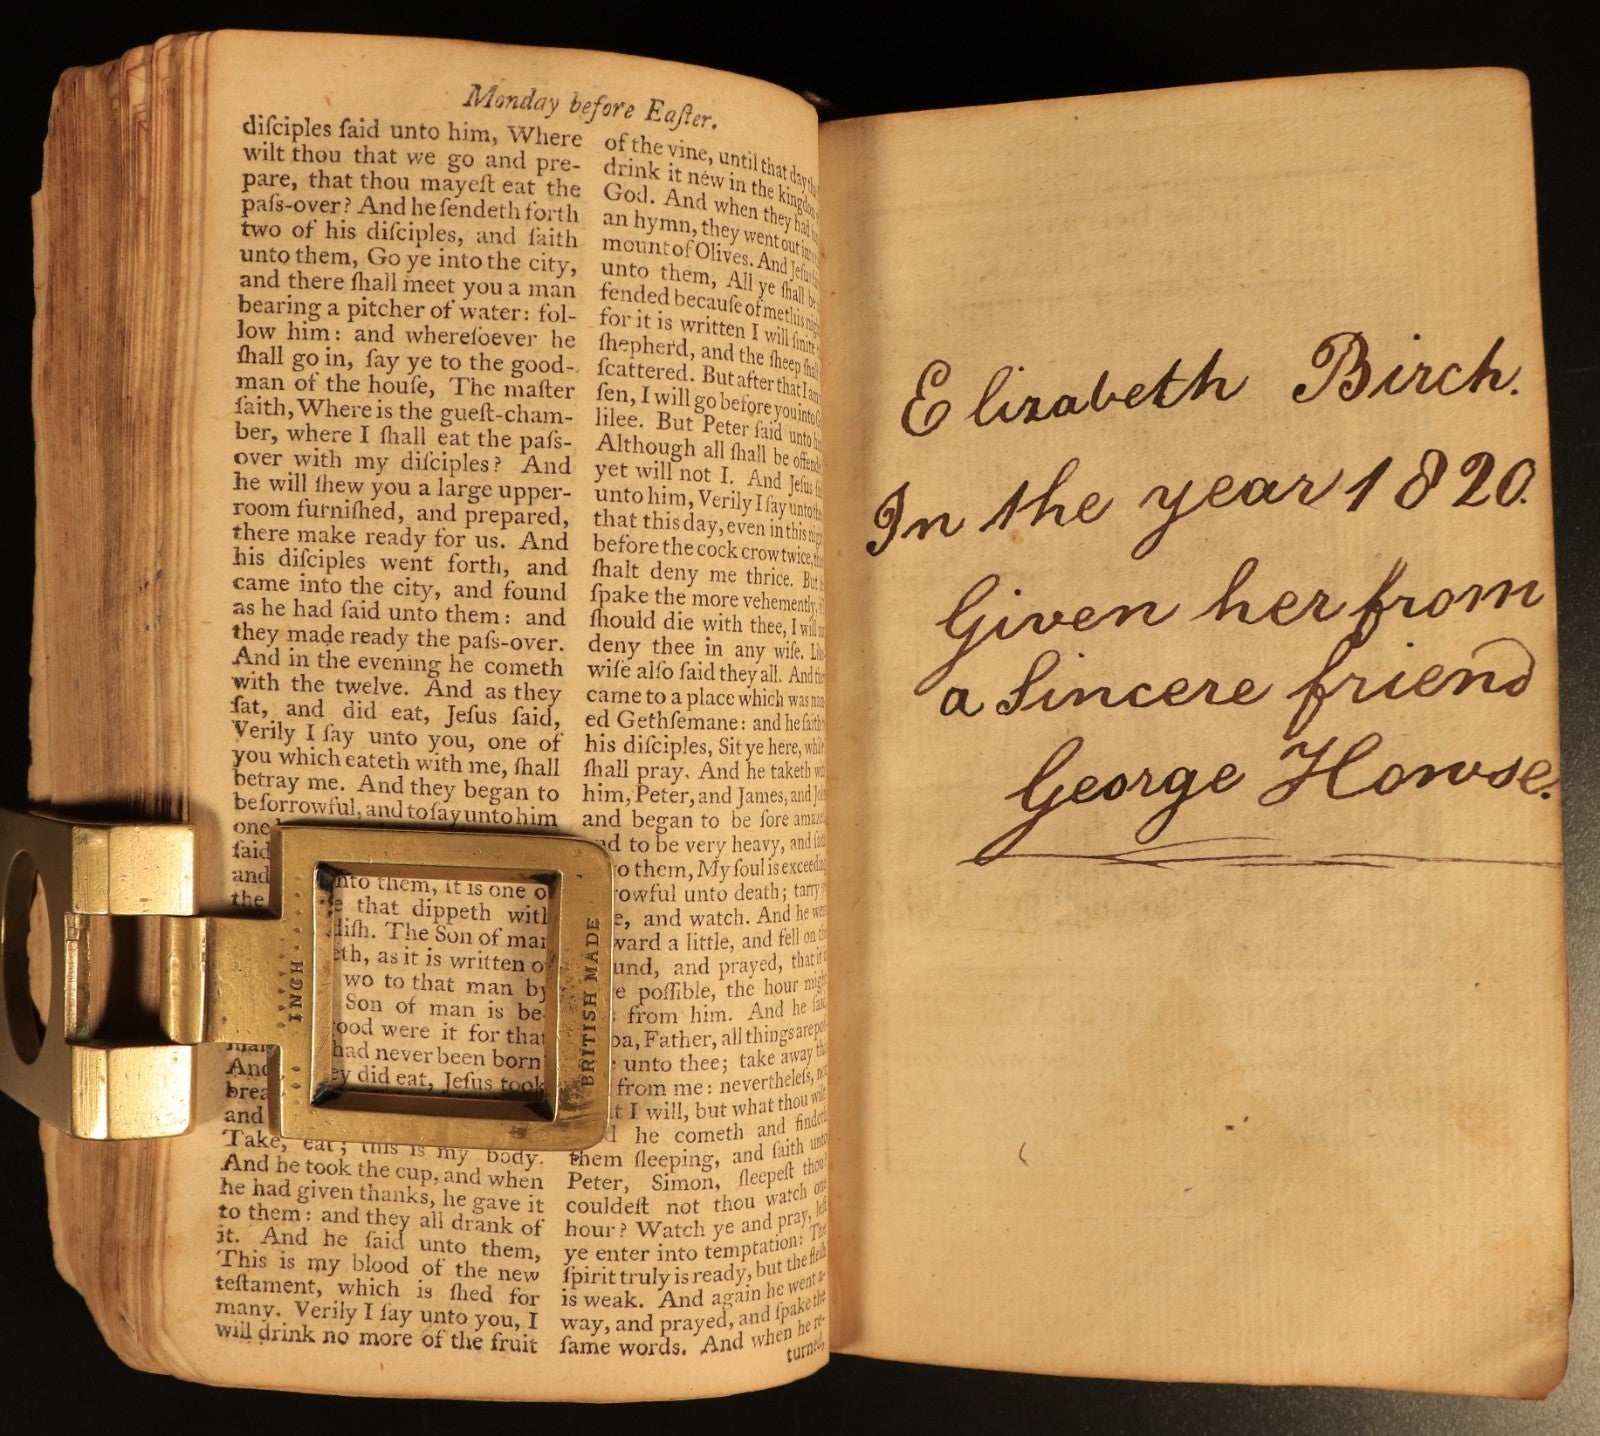 Monday before Eaſter.
diſciples ſaid unto him, Where
wilt thou that we go and pre-
pare, that thou mayeſt eat the
paſs-over? And he ſendeth forth
two of his diſciples, and ſaith
unto them, Go ye into the city,
and there ſhall meet you a man
bearing a pitcher of water: fol-
low him: and whereſoever he
ſhall go in, ſay ye to the good-
man of the houſe, The maſter
ſaith, Where is the gueſt-cham-
ber, where I ſhall eat the paſs-
over with my diſciples? And
he will ſhew you a large upper-
room furniſhed, and prepared,
there make ready for us. And
his diſciples went forth, and
came into the city, and found
as he had ſaid unto them: and
they made ready the paſs-over.
And in the evening he cometh
with the twelve. And as they
ſat, and did eat, Jeſus ſaid,
Verily I ſay unto you, one of
you which eateth with me, ſhall
betray me. And they began to
be ſorrowful, and to ſay unto him
one
ſaid unto them, It is one
and that dippeth with
the diſh. The Son of man
as it is written
to that man by
Son of man is be-
were it for that
had never been born
And did eat, Jeſus took
and
Take, eat; this is my body.
And he took the cup, and when
he had given thanks, he gave it
to them: and they all drank of
it. And he ſaid unto them,
This is my blood of the new
teſtament, which is ſhed for
many. Verily I ſay unto you, I
will drink no more of the fruit
of the vine, until that day
drink it new in the kingdom
God. And when they had
an hymn, they went out
mount of Olives. And Jeſus
unto them, All ye ſhall be
fended becauſe of me this night
for it is written I will ſmite
ſhepherd, and the ſheep ſhall
ſcattered. But after that I am
ſen, I will go before you into
lilee. But Peter ſaid unto
Although all ſhall be offended
yet will not I. And Jeſus
unto him, Verily I ſay unto
that this day, even in this night
before the cock crow twice,
ſhalt deny me thrice. But
ſpake the more vehemently,
ſhould die with thee, I will
deny thee in any wiſe. Like-
wiſe alſo ſaid they all. And
came to a place which was nam-
ed Gethſemane: and he ſaith
his diſciples, Sit ye here, while
ſhall pray. And he taketh with
him, Peter, and James, and John
and began to be ſore amazed
and to be very heavy, and ſaith
to them, My ſoul is exceeding
unto death; tarry
and watch. And he went
a little, and fell on the
and prayed, that
poſſible, the hour might
from him. And he ſaid
Father, all things are poſ-
unto thee; take away
from me: nevertheleſs, not
I will, but what thou wilt
he cometh and findeth
them ſleeping, and ſaith unto
Peter, Simon, ſleepeſt thou?
couldeſt not thou watch one
hour? Watch ye and pray, leſt
ye enter into temptation: The
ſpirit truly is ready, but the fleſh
is weak. And again he went a-
way, and prayed, and ſpake the
ſame words. And when he re-
turned,
INCH
BRITISH MADE
Elizabeth Birch.
In the year 1820.
Given her from
a Sincere friend
George Howse.